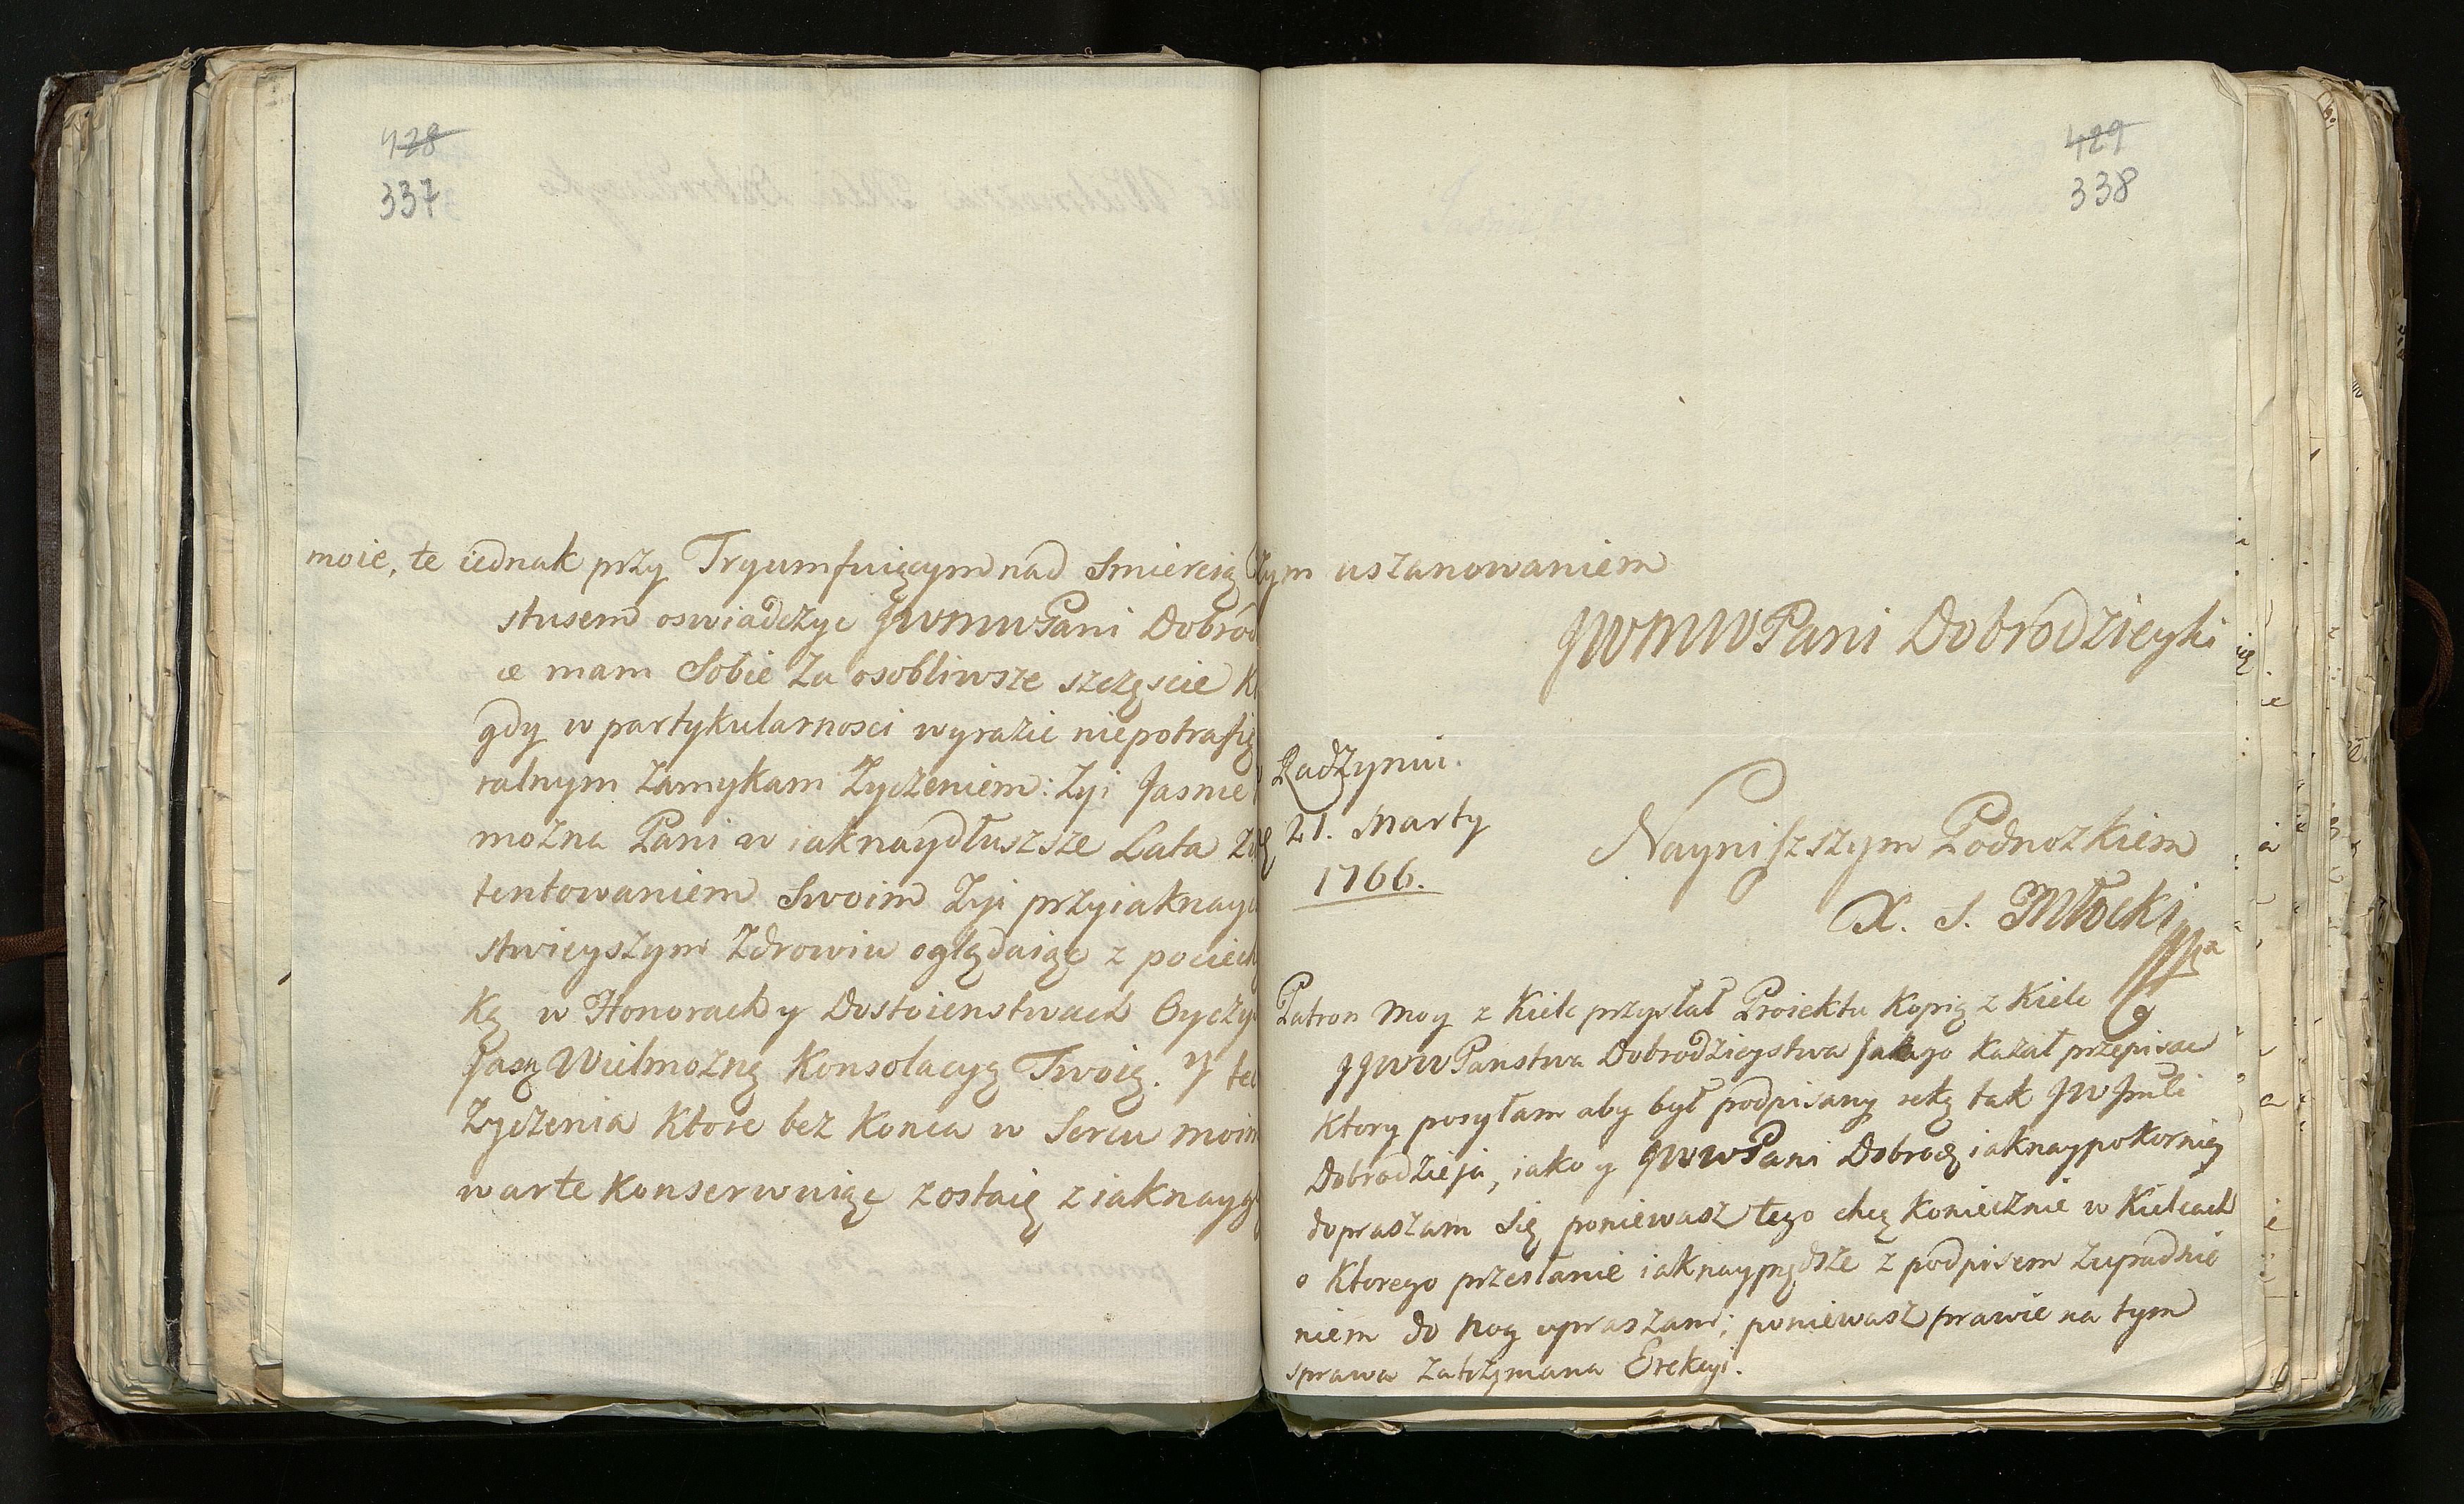 428
337
moie, te iednak przy Tryumfuiącym nad Smiercią
stusem oswiadczyc JWMWPani Dobrod
æ mam Sobie za osobliwsze szczęscie
gdy w partykularnosci wyrazic niepotrafię
ralnym zamykam Zyczeniem: Zyi Jasnie
mozna Pani w iaknaydłuszsze Lata
tentowaniem Swoim Zyi przyiaknay
stwieyszym Zdrowiu oglądaiąc z pociech
Kę w Honorach y Dostoienstwach Oyczy
Jasną Wielmozną Konsolacyą Twoię. Y te
Zyczenia Ktore bez Konca w Sercu moim
warte Konserwuiąc zostaię z iaknayg
429
338
zym uszanowaniem
JWMWPani Dobrodzieyki
Radzymin.
21. Marty
1766.
Nayniższym Podnozkiem
X. S. Młocki
Patron Moy z Kielc przysłał Proiektu Kopią z Kielc
JJWW Panstwa Dobrodzieystwa Ja kazał przepisac
Ktory posyłam aby był podpisany ręką tak JW
Dobrodzieja, iako y JWWPani Dobrodz iaknaypokorniey
dopraszam Się poniewasz tego chcą Koniecznie w Kielcach
o Ktorego przesłanie iaknayprędsze z podpisem Zupadnie
niem do nog upraszam; poniewasz prawie na tym
sprawa zatrzymana Erekcyi.